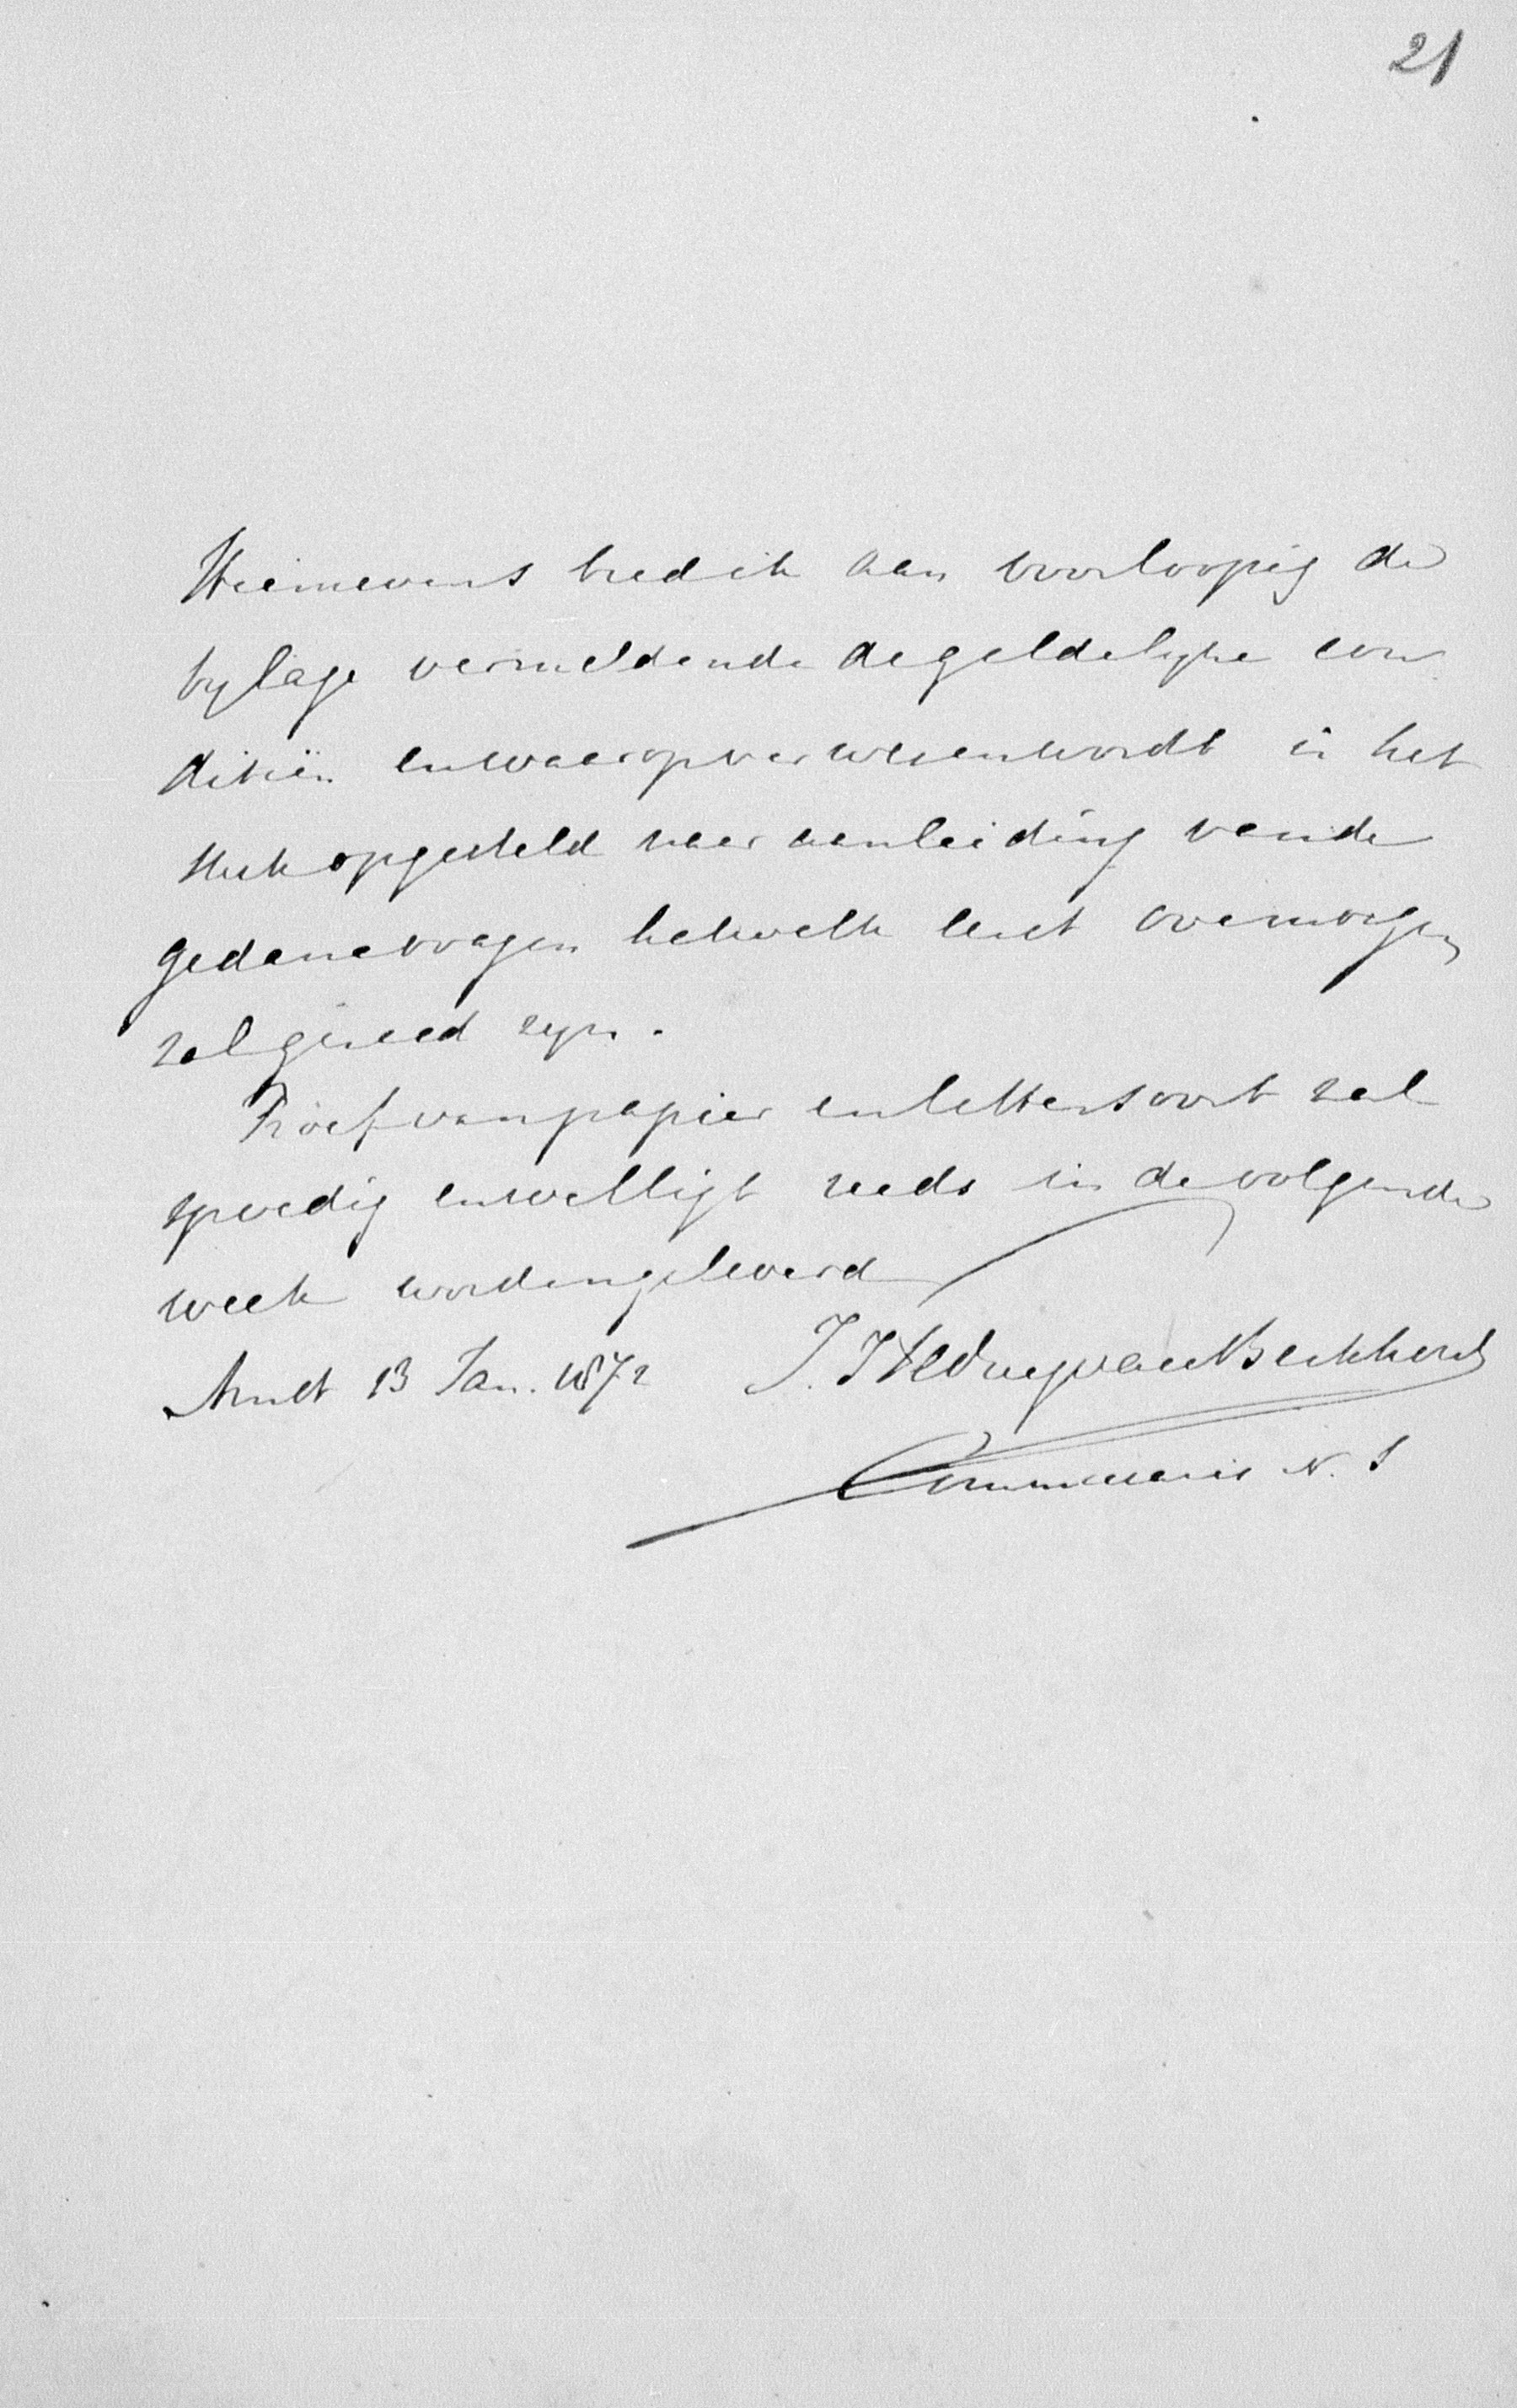 21
Hiernevens bied ik aan voorloopig de
bylage vermeldende de geldelyke con
ditiën en waarop verwesen wordt in het
stuk opgesteld naar aanleiding van de
gedane vragen hetwelk eerst overmorgen
zal gereed zyn.
Proef van papier en lettersoort zal
spoedig en welligt reeds in de volgende
week worden geleverd
Amst 13 Jan. 1872
Commissaris N. S